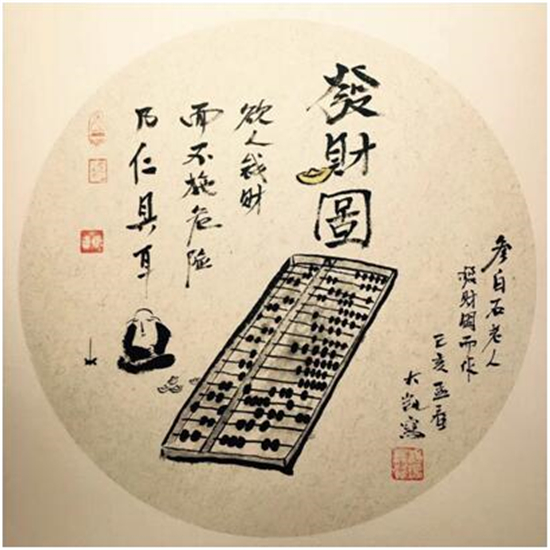 發財圖
欲人錢財
而不施危險
乃仁具耳
參白石老人
發財圖而作
己亥孟
大凱寫